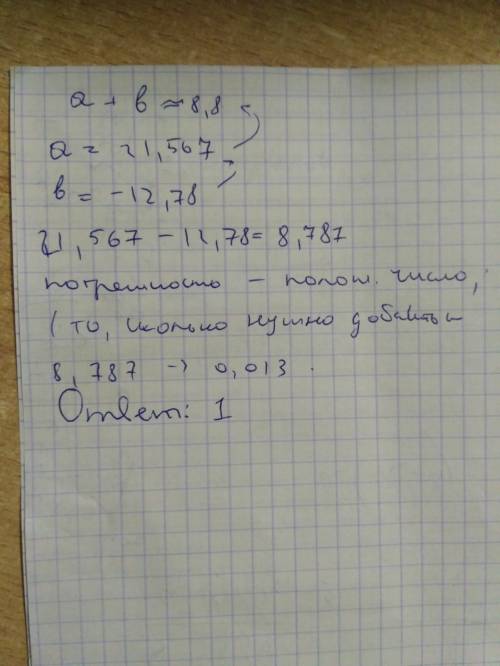 a + b ≈ 8,8
a = 21,567
b = -12,78
21,567 - 12,78 = 8,787
погрешность - полож. число,
(то, сколько нужно добавить к
8,787 → 0,013.
Ответ: 1